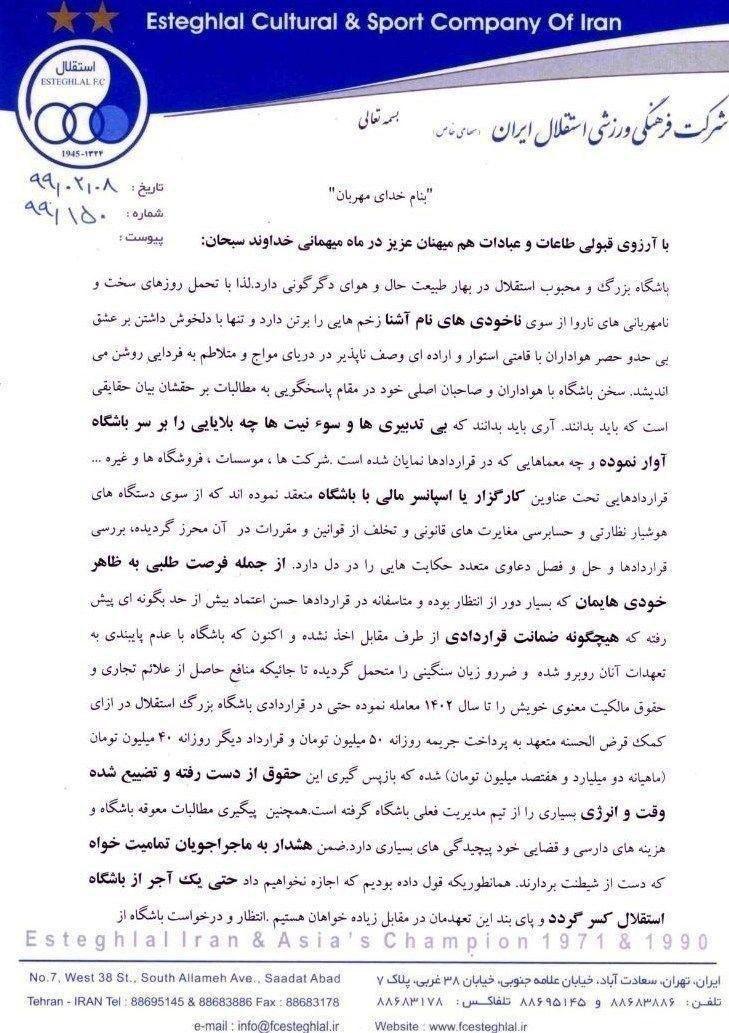 Esteghlal Cultural & Sport Company Of Iran
استقلال
ESTEGHLAL F.C
1945-۱۳۲۴
شرکت فرهنگی ورزشی استقلال ایران (سهامی خاص)
بسمه تعالی
تاریخ: ۹۹/۰۲/۰۸
شماره: ۹۹/۱۵۰
پیوست:
"بنام خدای مهربان"
با آرزوی قبولی طاعات و عبادات هم میهنان عزیز در ماه میهمانی خداوند سبحان:
باشگاه بزرگ و محبوب استقلال در بهار طبیعت حال و هوای دگرگونی دارد.لذا با تحمل روزهای سخت و
نامهربانی های ناروا از سوی ناخودی های نام آشنا زخم هایی را برتن دارد و تنها با دلخوش داشتن بر عشق
بی حدو حصر هواداران با قامتی استوار و اراده ای وصف ناپذیر در دریای مواج و متلاطم به فردایی روشن می
اندیشد. سخن باشگاه با هواداران و صاحبان اصلی خود در مقام پاسخگویی به مطالبات بر حقشان بیان حقایقی
است که باید بدانند. آری باید بدانند که بی تدبیری ها و سوء نیت ها چه بلایایی را بر سر باشگاه
آوار نموده و چه معماهایی که در قراردادها نمایان شده است .شرکت ها ، موسسات ، فروشگاه ها و غیره ...
قراردادهایی تحت عناوین کارگزار یا اسپانسر مالی با باشگاه منعقد نموده اند که از سوی دستگاه های
هوشیار نظارتی و حسابرسی مغایرت های قانونی و تخلف از قوانین و مقررات در آن محرز گردیده، بررسی
قراردادها و حل و فصل دعاوی متعدد حکایت هایی را در دل دارد. از جمله فرصت طلبی به ظاهر
خودی هایمان که بسیار دور از انتظار بوده و متاسفانه در قراردادها حسن اعتماد بیش از حد بگونه ای پیش
رفته که هیچگونه ضمانت قراردادی از طرف مقابل اخذ نشده و اکنون که باشگاه با عدم پایبندی به
تعهدات آنان روبرو شده و ضررو زیان سنگینی را متحمل گردیده تا جائیکه منافع حاصل از علائم تجاری و
حقوق مالکیت معنوی خویش را تا سال ۱۴۰۲ معامله نموده حتی در قراردادی باشگاه بزرگ استقلال در ازای
کمک قرض الحسنه متعهد به پرداخت جریمه روزانه ۵۰ میلیون تومان و قرارداد دیگر روزانه ۴۰ میلیون تومان
(ماهیانه دو میلیارد و هفتصد میلیون تومان) شده که بازپس گیری این حقوق از دست رفته و تضییع شده
وقت و انرژی بسیاری را از تیم مدیریت فعلی باشگاه گرفته است.همچنین پیگیری مطالبات معوقه باشگاه و
هزینه های دارسی و قضایی خود پیچیدگی های بسیاری دارد.ضمن هشدار به ماجراجویان تمامیت خواه
که دست از شیطنت بردارند. همانطوریکه قول داده بودیم که اجازه نخواهیم داد حتی یک آجر از باشگاه
استقلال کسر گردد و پای بند این تعهدمان در مقابل زیاده خواهان هستیم .انتظار و درخواست باشگاه از
Esteghlal Iran & Asia's Champion 1971 & 1990
No.7, West 38 St., South Allameh Ave., Saadat Abad
Tehran - IRAN Tel : 88695145 & 88683886 Fax : 88683178
e-mail : info@fcesteghlal.ir
ایران، تهران، سعادت آباد، خیابان علامه جنوبی، خیابان ۳۸ غربی، پلاک ۷
تلفن: ۸۸۶۸۳۸۸۶ و ۸۸۶۹۵۱۴۵ تلفاکس: ۸۸۶۸۳۱۷۸
Website : www.fcesteghlal.ir